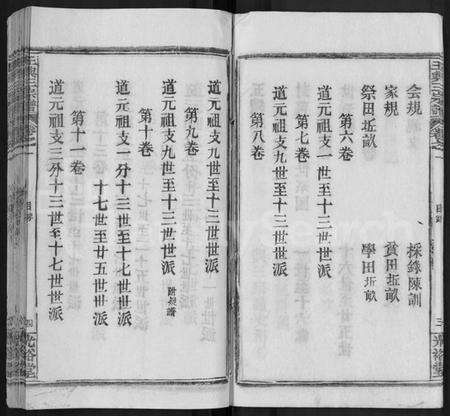 會規　採錄陳訓
家規　貧田坵畝
祭田坵畝　學田坵畝
第六卷
道元祖支一世至十三世世派
第七卷
道元祖支九世至十三世世派
第八卷
目錄
三
光裕堂
道元祖支九世至十三世世派
第九卷
道元祖支九世至十三世世派
第十卷
道元祖支一分十三世至十七世世派
十七世至廿五世世派
第十一卷
道元祖支二分十三世至十七世世派
目錄
四
光裕堂